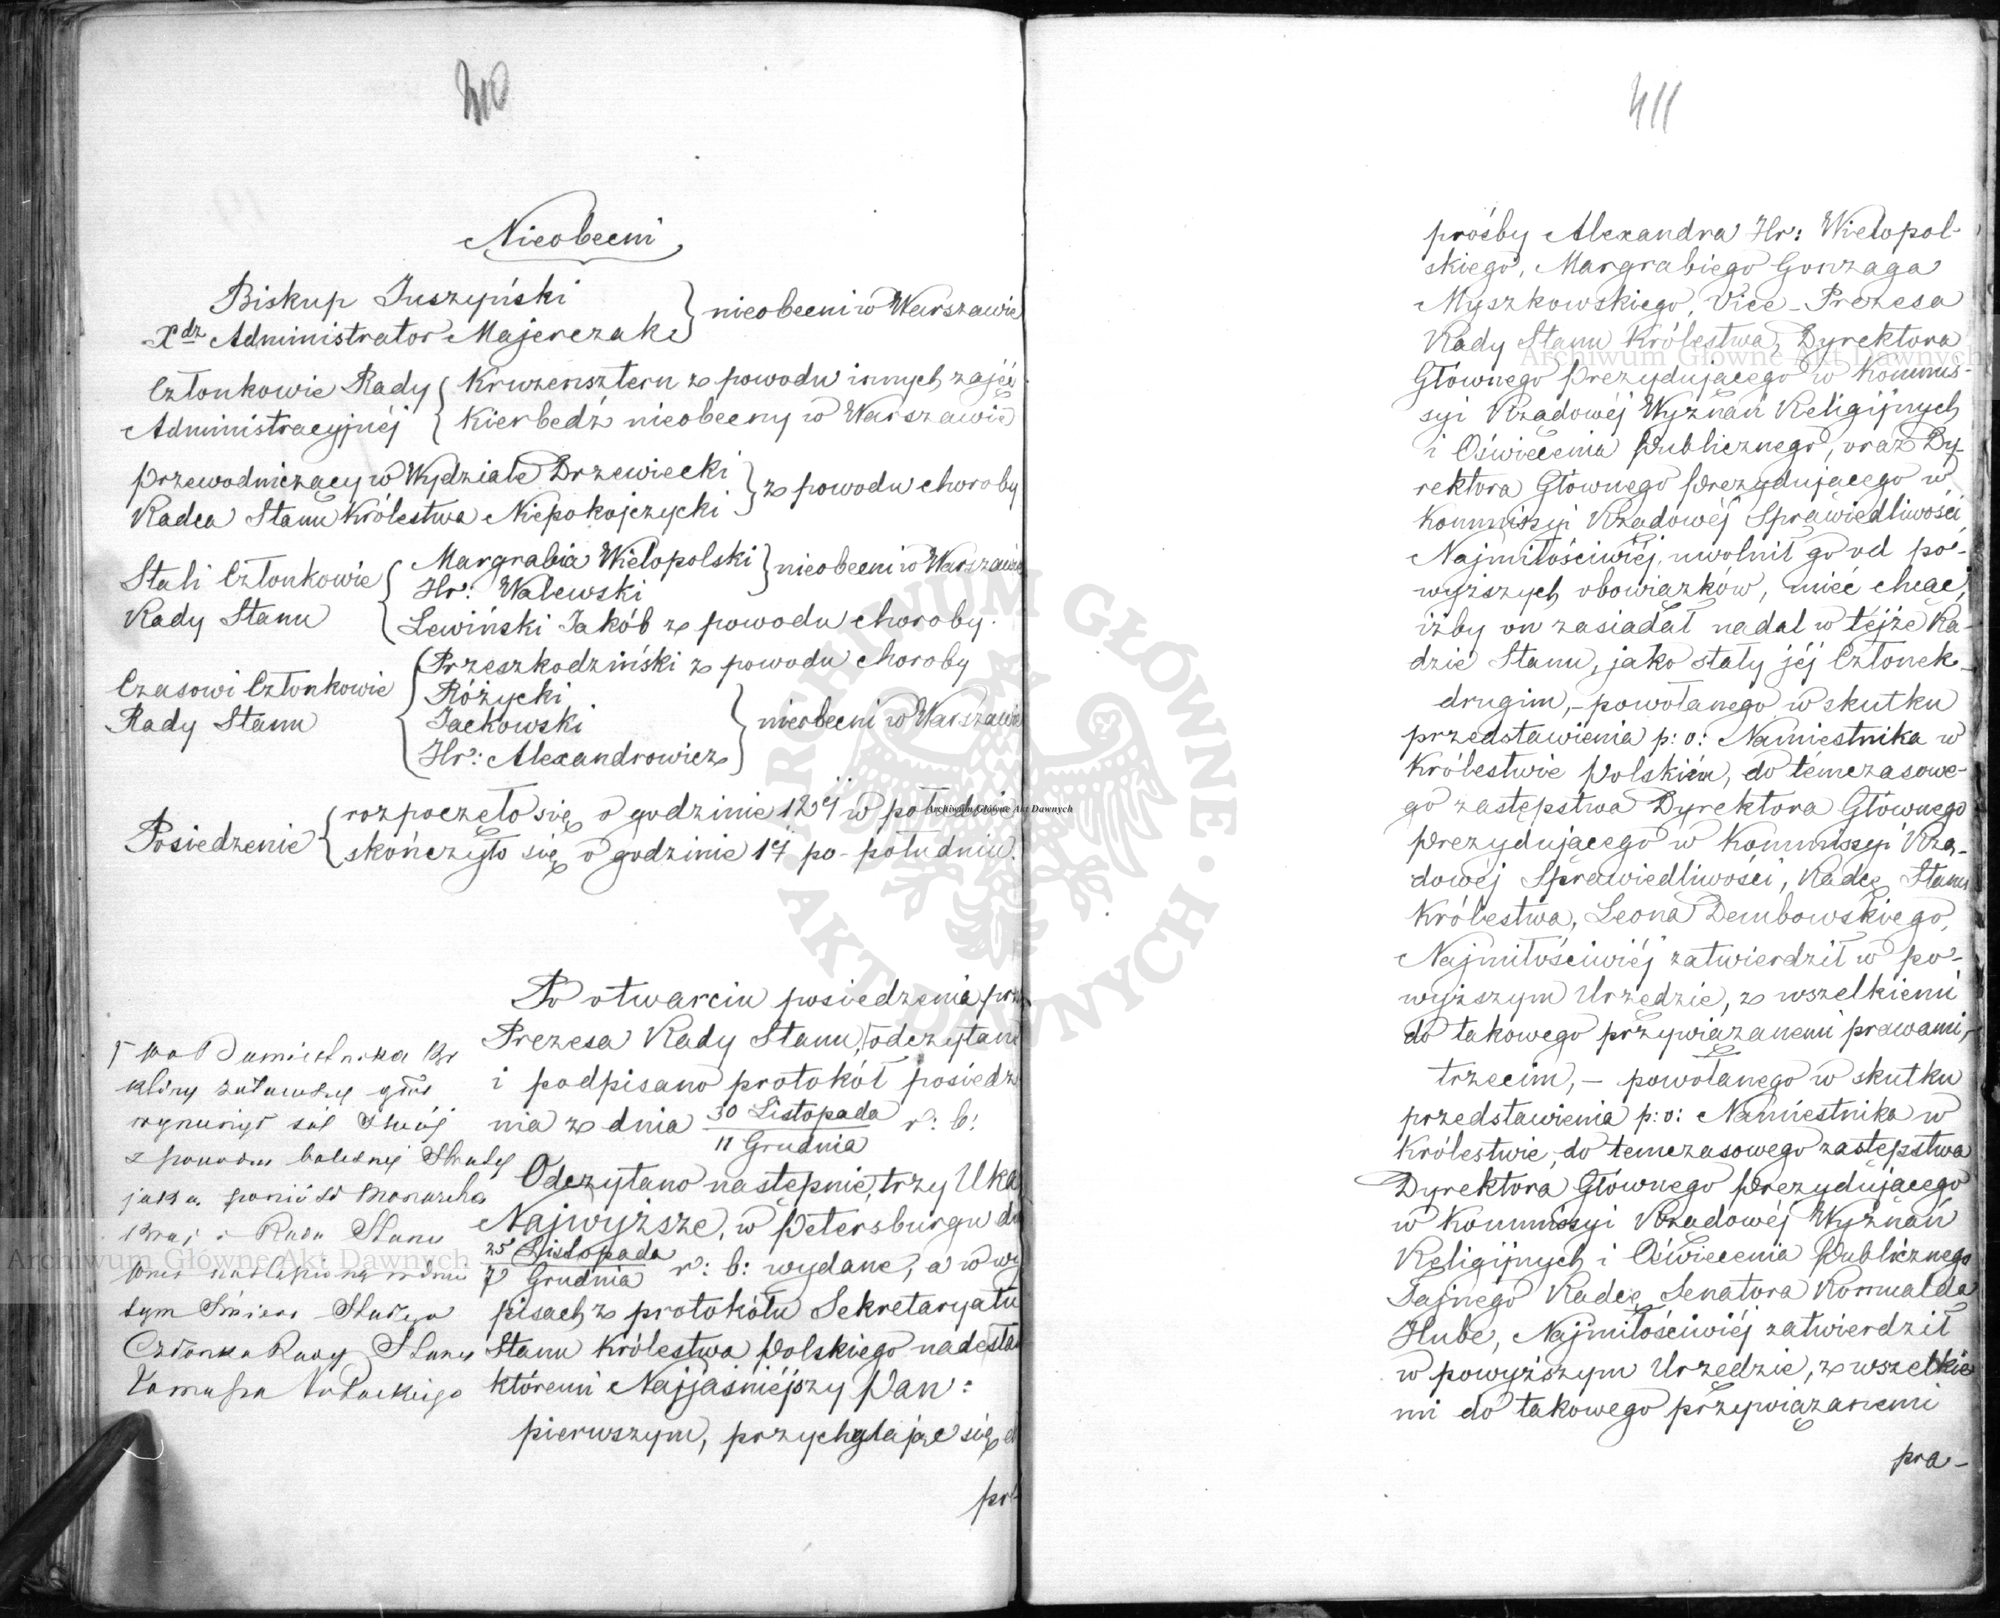 410
Nieobecni
Biskup Juszyński
Xdz Administrator Majerczak } nieobecni w Warszawie
Członkowie Rady { Kruzensztern z powodu innych zajęć
Administracyjnéj { Kierbedź nieobecny w Warszawie
Przewodniczący w Wydziale Drzewiecki
Radca Stanu Królestwa Niepokojczycki } z powodu choroby
Stali Członkowie { Margrabia Wielopolski } nieobecni w Warszawie
Hr: Walewski
Rady Stanu { Lewiński Jakób z powodu choroby.
Przeszkodziński z powodu choroby
Czasowi Członkowie { Różycki
Rady Stanu Jackowski } nieobecni w Warszawie
Hr: Alexandrowicz
Posiedzenie { rozpoczęło się o godzinie 12éj w południe
skończyło się o godzinie 1éj po-południu.
Po otwarciu posiedzenia prz
Prezesa Rady Stanu, odczytan
i podpisano protokół posiedz
nia z dnia 30 Listopada / 11 Grudnia r: b:
Odczytano następnie, trzy Uka
Najwyższe, w Petersburgu d
25 Listopada / 7 Grudnia r: b: wydane, a w wy
pisach z protokółu Sekretaryatu
Stanu Królestwa Polskiego nadesła
któremi Najjaśniéjszy Pan:
pierwszym, przychylając się
pró-
który zabrawszy głos
wynurzył żal Swój
z powodu bolesnéj Straty
jaką poniósł Monarcha
Kraj i Rada Stanu
przez nastąpioną w dniu
tym Śmierć Stałego
Członka Rady Stanu
Tomasza Potockiego
411
prośby Alexandra Hr: Wielopol-
skiego, Margrabiego Gonzaga
Myszkowskiego, Vice-Prezesa
Rady Stanu Królestwa, Dyrektora
Głównego Prezydującego w Kommis-
syi Rządowéj Wyznań Religijnych
i Oświecenia Publicznego, oraz Dy-
rektora Głównego Prezydującego w
Kommissyi Rządowéj Sprawiedliwości,
Najmiłościwiéj uwolnił go od po-
wyższych obowiązków, mieć chcąc,
iżby on zasiadał nadal w téjże Ra-
dzie Stanu, jako stały jéj Członek.
drugim, - powołanego w skutku
przedstawienia p: o: Namiestnika w
Królestwie Polskiém, do témczasowe-
go zastępstwa Dyrektora Głównego
Prezydującego w Kommissyi Rzą-
dowéj Sprawiedliwości, Radcę Stanu
Królestwa, Leona Dembowskiego,
Najmiłościwiéj zatwierdził w po-
wyższym Urzędzie, z wszelkiemi
do takowego przywiązanemi prawami,
trzecim, - powołanego w skutku
przedstawienia p: o: Namiestnika w
Królestwie, do temczasowego zastępstwa
Dyrektora Głównego Prezydującego
w Kommissyi Rządowéj Wyznań
Religijnych i Oświecenia Publicznego
Tajnego Radcę, Senatora Romualda
Hube, Najmiłościwiéj zatwierdził
w powyższym Urzędzie, z wszelkie
mi do takowego przywiązanemi
pra-
Archiwum Główne Akt Dawnych
Archiwum Główne Akt Dawnych
Archiwum Główne Akt Dawnych
ARCHIWUM GŁÓWNE · AKT DAWNYCH ·